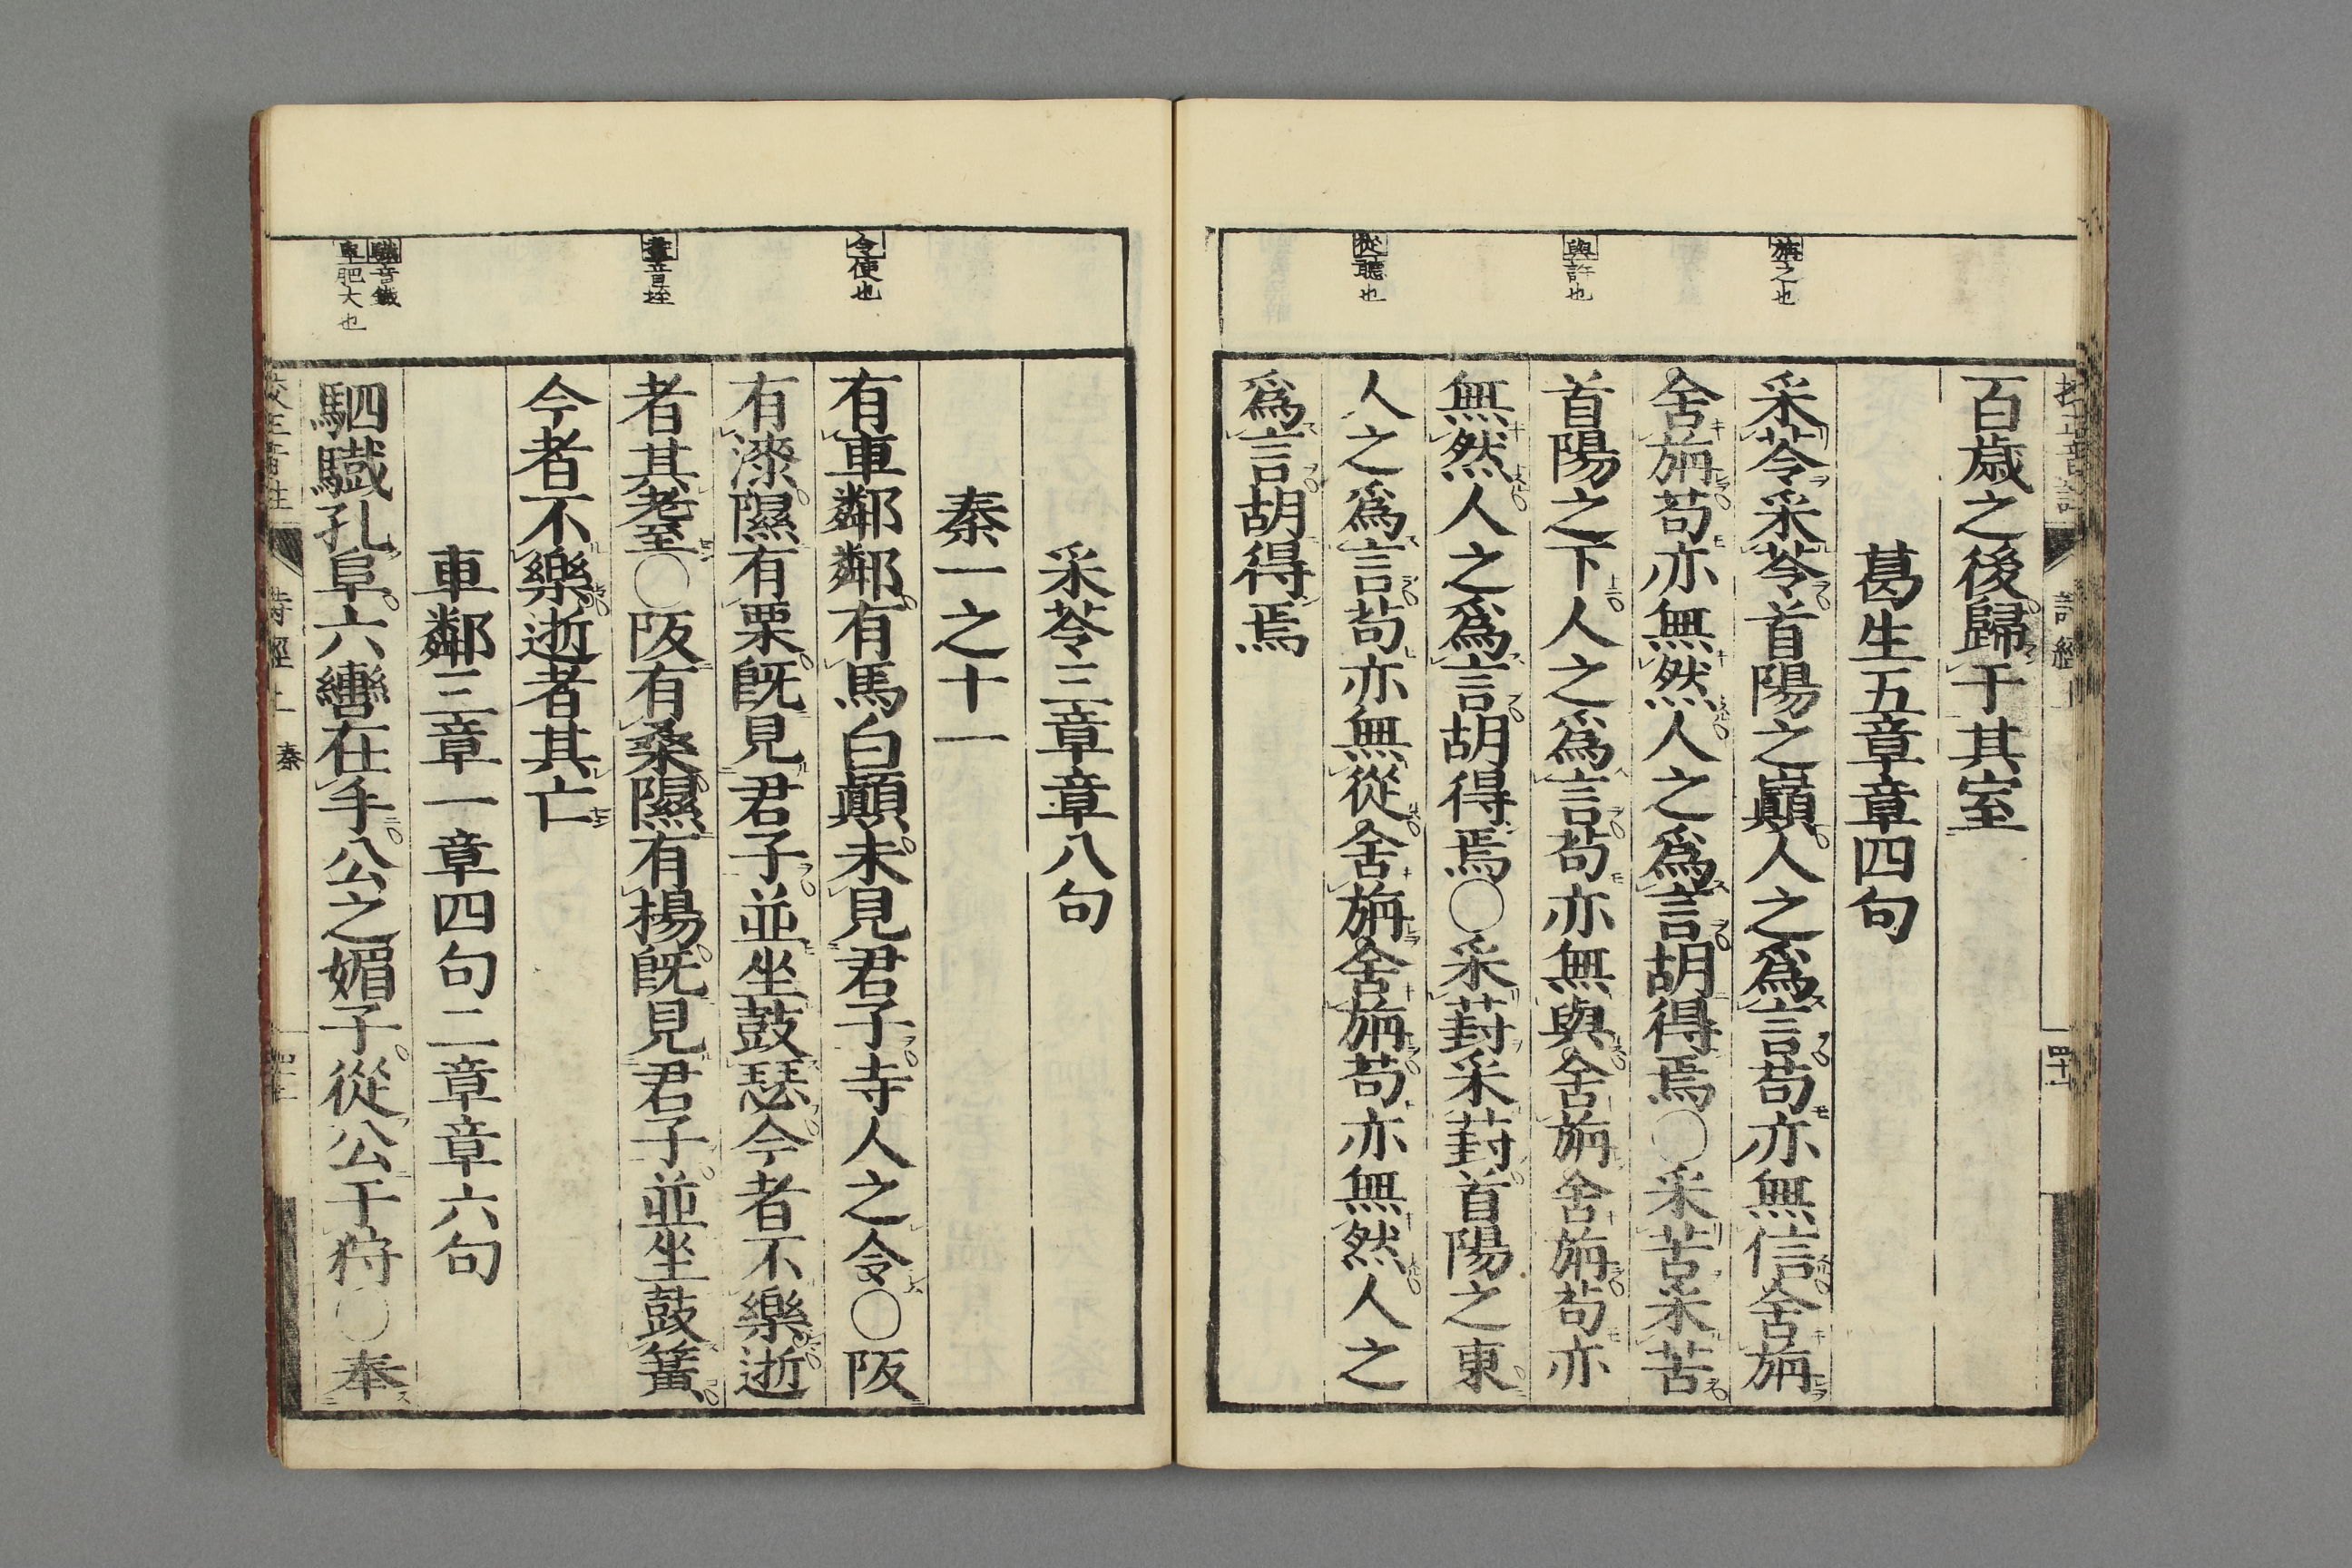 旃之也
與許也
從聽也
百歳之後歸于其室
葛生五章章四句
采苓采苓首陽之巓人之爲言苟亦無信舍旃
舍旃苟亦無然人之爲言胡得焉〇采苦采苦
首陽之下人之爲言苟亦無與舍旃舍旃苟亦
無然人之爲言胡得焉〇采葑采葑首陽之東
人之爲言苟亦無從舍旃舍旃苟亦無然人之
爲言胡得焉
令使也
簧音
驖音鐵
阜肥大也
采苓三章章八句
秦一之十一
有車鄰鄰有馬白顚未見君子寺人之令〇阪
有漆隰有栗既見君子並坐鼓瑟今者不樂逝
者其耋〇阪有桑隰有楊既見君子並坐鼓簧
今者不樂逝者其亡
車鄰三章一章四句二章章六句
駟驖孔阜六轡在手公之媚子從公于狩〇奉
詩經上 秦